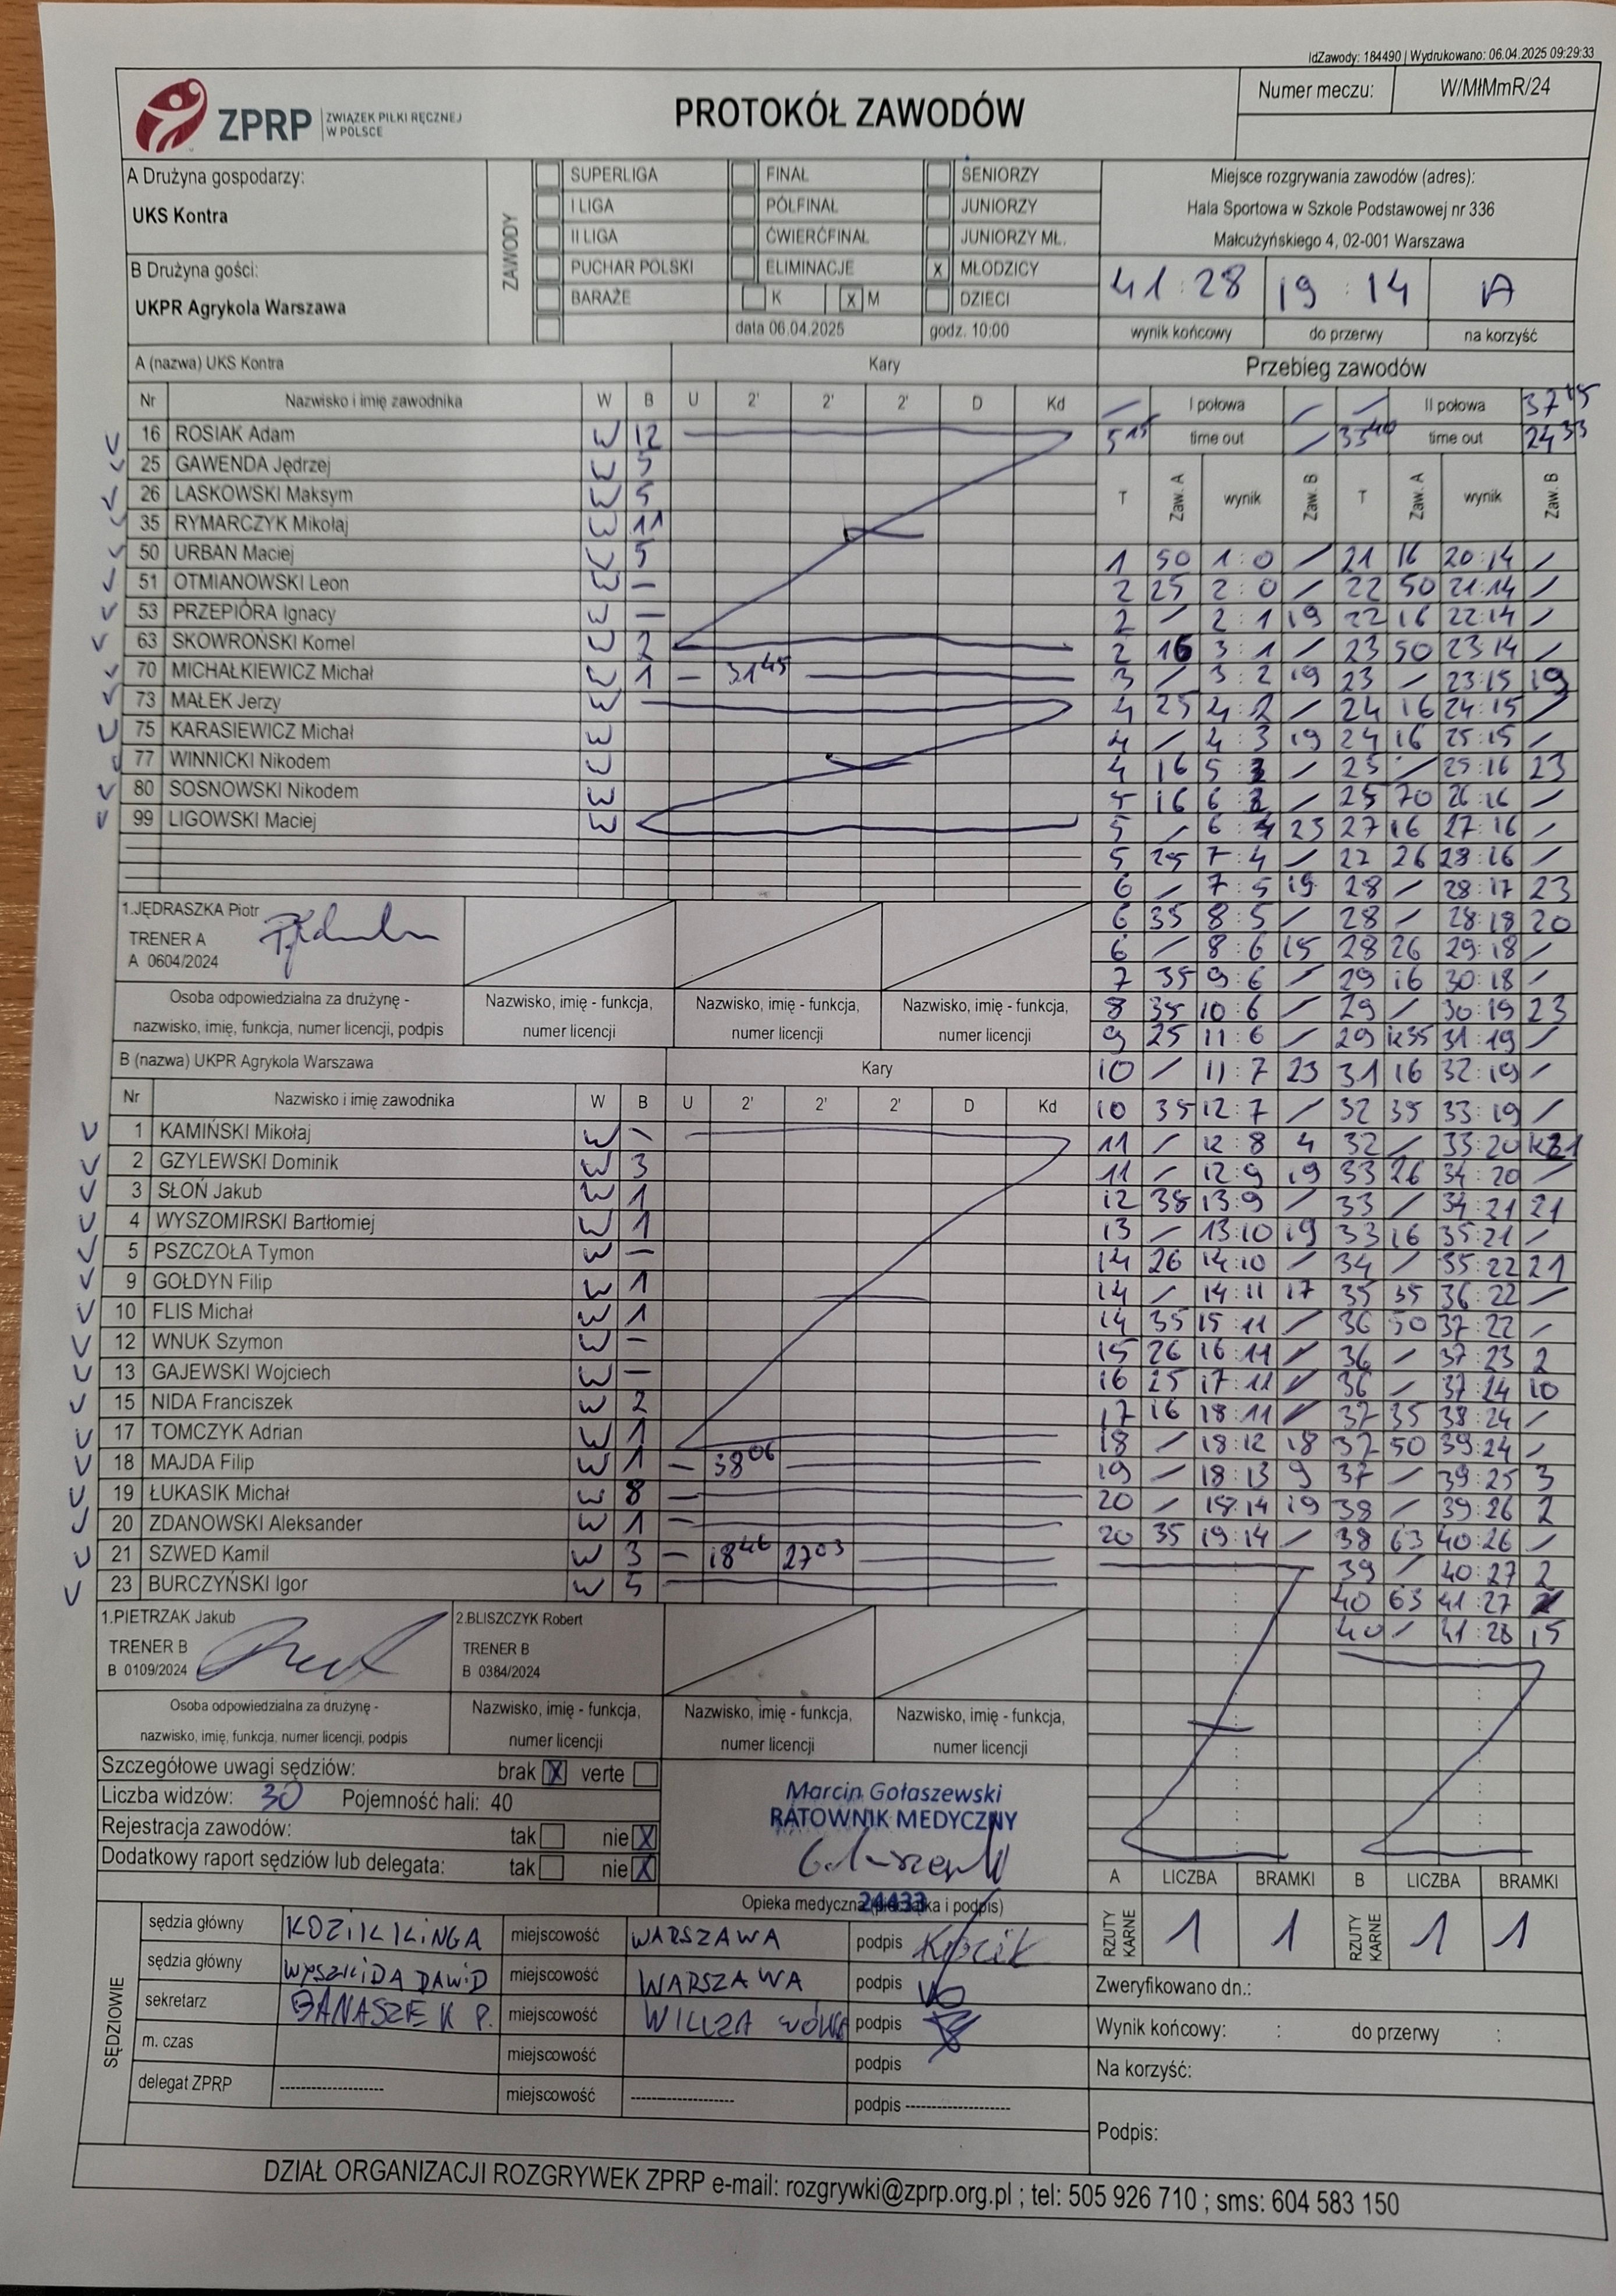 IdZawody: 184490 | Wydrukowano: 06.04.2025 09:29:33
ZPRP ZWIĄZEK PIŁKI RĘCZNEJ
W POLSCE
PROTOKÓŁ ZAWODÓW
Numer meczu: W/MłMmR/24
A Drużyna gospodarzy:
UKS Kontra
B Drużyna gości:
UKPR Agrykola Warszawa
ZAWODY
SUPERLIGA FINAŁ SENIORZY
I LIGA PÓŁFINAŁ JUNIORZY
II LIGA ĆWIERĆFINAŁ JUNIORZY MŁ.
PUCHAR POLSKI ELIMINACJE X MŁODZICY
BARAŻE K X M DZIECI
data 06.04.2025 godz. 10:00
Miejsce rozgrywania zawodów (adres):
Hala Sportowa w Szkole Podstawowej nr 336
Małcużyńskiego 4, 02-001 Warszawa
41:28 19:14 A
wynik końcowy do przerwy na korzyść
A (nazwa) UKS Kontra Kary
Nr Nazwisko i imię zawodnika W B U 2' 2' 2' D Kd
16 ROSIAK Adam W 12
25 GAWENDA Jędrzej W 5
26 LASKOWSKI Maksym W 5
35 RYMARCZYK Mikołaj W 11
50 URBAN Maciej W 5
51 OTMIANOWSKI Leon W –
53 PRZEPIÓRA Ignacy W –
63 SKOWROŃSKI Kornel W 2
70 MICHAŁKIEWICZ Michał W 1 – 31 45
73 MAŁEK Jerzy W
75 KARASIEWICZ Michał W
77 WINNICKI Nikodem W
80 SOSNOWSKI Nikodem W
99 LIGOWSKI Maciej W
1.JĘDRASZKA Piotr
TRENER A
A 0604/2024
Osoba odpowiedzialna za drużynę -
nazwisko, imię, funkcja, numer licencji, podpis
Nazwisko, imię - funkcja,
numer licencji
Nazwisko, imię - funkcja,
numer licencji
Nazwisko, imię - funkcja,
numer licencji
B (nazwa) UKPR Agrykola Warszawa Kary
Nr Nazwisko i imię zawodnika W B U 2' 2' 2' D Kd
1 KAMIŃSKI Mikołaj W –
2 GZYLEWSKI Dominik W 3
3 SŁOŃ Jakub W 1
4 WYSZOMIRSKI Bartłomiej W 1
5 PSZCZOŁA Tymon W –
9 GOŁDYN Filip W 1
10 FLIS Michał W 1
12 WNUK Szymon W –
13 GAJEWSKI Wojciech W –
15 NIDA Franciszek W 2
17 TOMCZYK Adrian W 1
18 MAJDA Filip W 1 – 38 06
19 ŁUKASIK Michał W 8 –
20 ZDANOWSKI Aleksander W 1 –
21 SZWED Kamil W 3 – 18 46 27 03
23 BURCZYŃSKI Igor W 5
1.PIETRZAK Jakub
TRENER B
B 0109/2024
2.BLISZCZYK Robert
TRENER B
B 0384/2024
Osoba odpowiedzialna za drużynę -
nazwisko, imię, funkcja, numer licencji, podpis
Nazwisko, imię - funkcja,
numer licencji
Nazwisko, imię - funkcja,
numer licencji
Nazwisko, imię - funkcja,
numer licencji
Szczegółowe uwagi sędziów: brak X verte
Liczba widzów: 30 Pojemność hali: 40
Rejestracja zawodów: tak nie X
Dodatkowy raport sędziów lub delegata: tak nie X
Marcin Gołaszewski
RATOWNIK MEDYCZNY
24433
Opieka medyczna (pieczątka i podpis)
SĘDZIOWIE
sędzia główny KOZIK KINGA miejscowość WARSZAWA podpis
sędzia główny DAWID miejscowość WARSZAWA podpis
sekretarz BANASZEK P. miejscowość WILCZA podpis
m. czas miejscowość podpis
delegat ZPRP -------------------- miejscowość -------------------- podpis --------------------
Przebieg zawodów
/ I połowa / / II połowa 37 15
5 15 time out / 33 40 time out 24 33
T Zaw. A wynik Zaw. B T Zaw. A wynik Zaw. B
1 50 1:0 / 21 16 20:14 /
2 25 2:0 / 22 50 21:14 /
2 / 2:1 19 22 16 22:14 /
2 16 3:1 / 23 50 23:14 /
3 / 3:2 19 23 / 23:15 19
4 25 4:2 / 24 16 24:15 /
4 / 4:3 19 24 16 25:15 /
4 16 5:3 / 25 / 25:16 23
5 16 6:3 / 25 70 26:16 /
5 / 6:4 23 27 16 27:16 /
5 25 7:4 / 27 26 28:16 /
6 / 7:5 19 28 / 28:17 23
6 35 8:5 / 28 / 28:18 20
6 / 8:6 15 28 26 29:18 /
7 35 9:6 / 29 16 30:18 /
8 35 10:6 / 29 / 30:19 23
9 25 11:6 / 29 K35 31:19 /
10 / 11:7 23 31 16 32:19 /
10 35 12:7 / 32 35 33:19 /
11 / 12:8 4 32 / 33:20 K21
11 / 12:9 19 33 26 34:20 /
12 35 13:9 / 33 / 34:21 21
13 / 13:10 19 33 16 35:21 /
14 26 14:10 / 34 / 35:22 21
14 / 14:11 17 35 35 36:22 /
14 35 15:11 / 36 50 37:22 /
15 26 16:11 / 36 / 37:23 2
16 25 17:11 / 36 / 37:24 10
17 16 18:11 / 37 35 38:24 /
18 / 18:12 18 37 50 39:24 /
19 / 18:13 9 37 / 39:25 3
20 / 18:14 19 38 / 39:26 2
20 35 19:14 / 38 63 40:26 /
39 / 40:27 2
40 63 41:27
40 / 41:28 15
A LICZBA BRAMKI B LICZBA BRAMKI
RZUTY KARNE 1 1 RZUTY KARNE 1 1
Zweryfikowano dn.:
Wynik końcowy: : do przerwy :
Na korzyść:
Podpis:
DZIAŁ ORGANIZACJI ROZGRYWEK ZPRP e-mail: rozgrywki@zprp.org.pl ; tel: 505 926 710 ; sms: 604 583 150